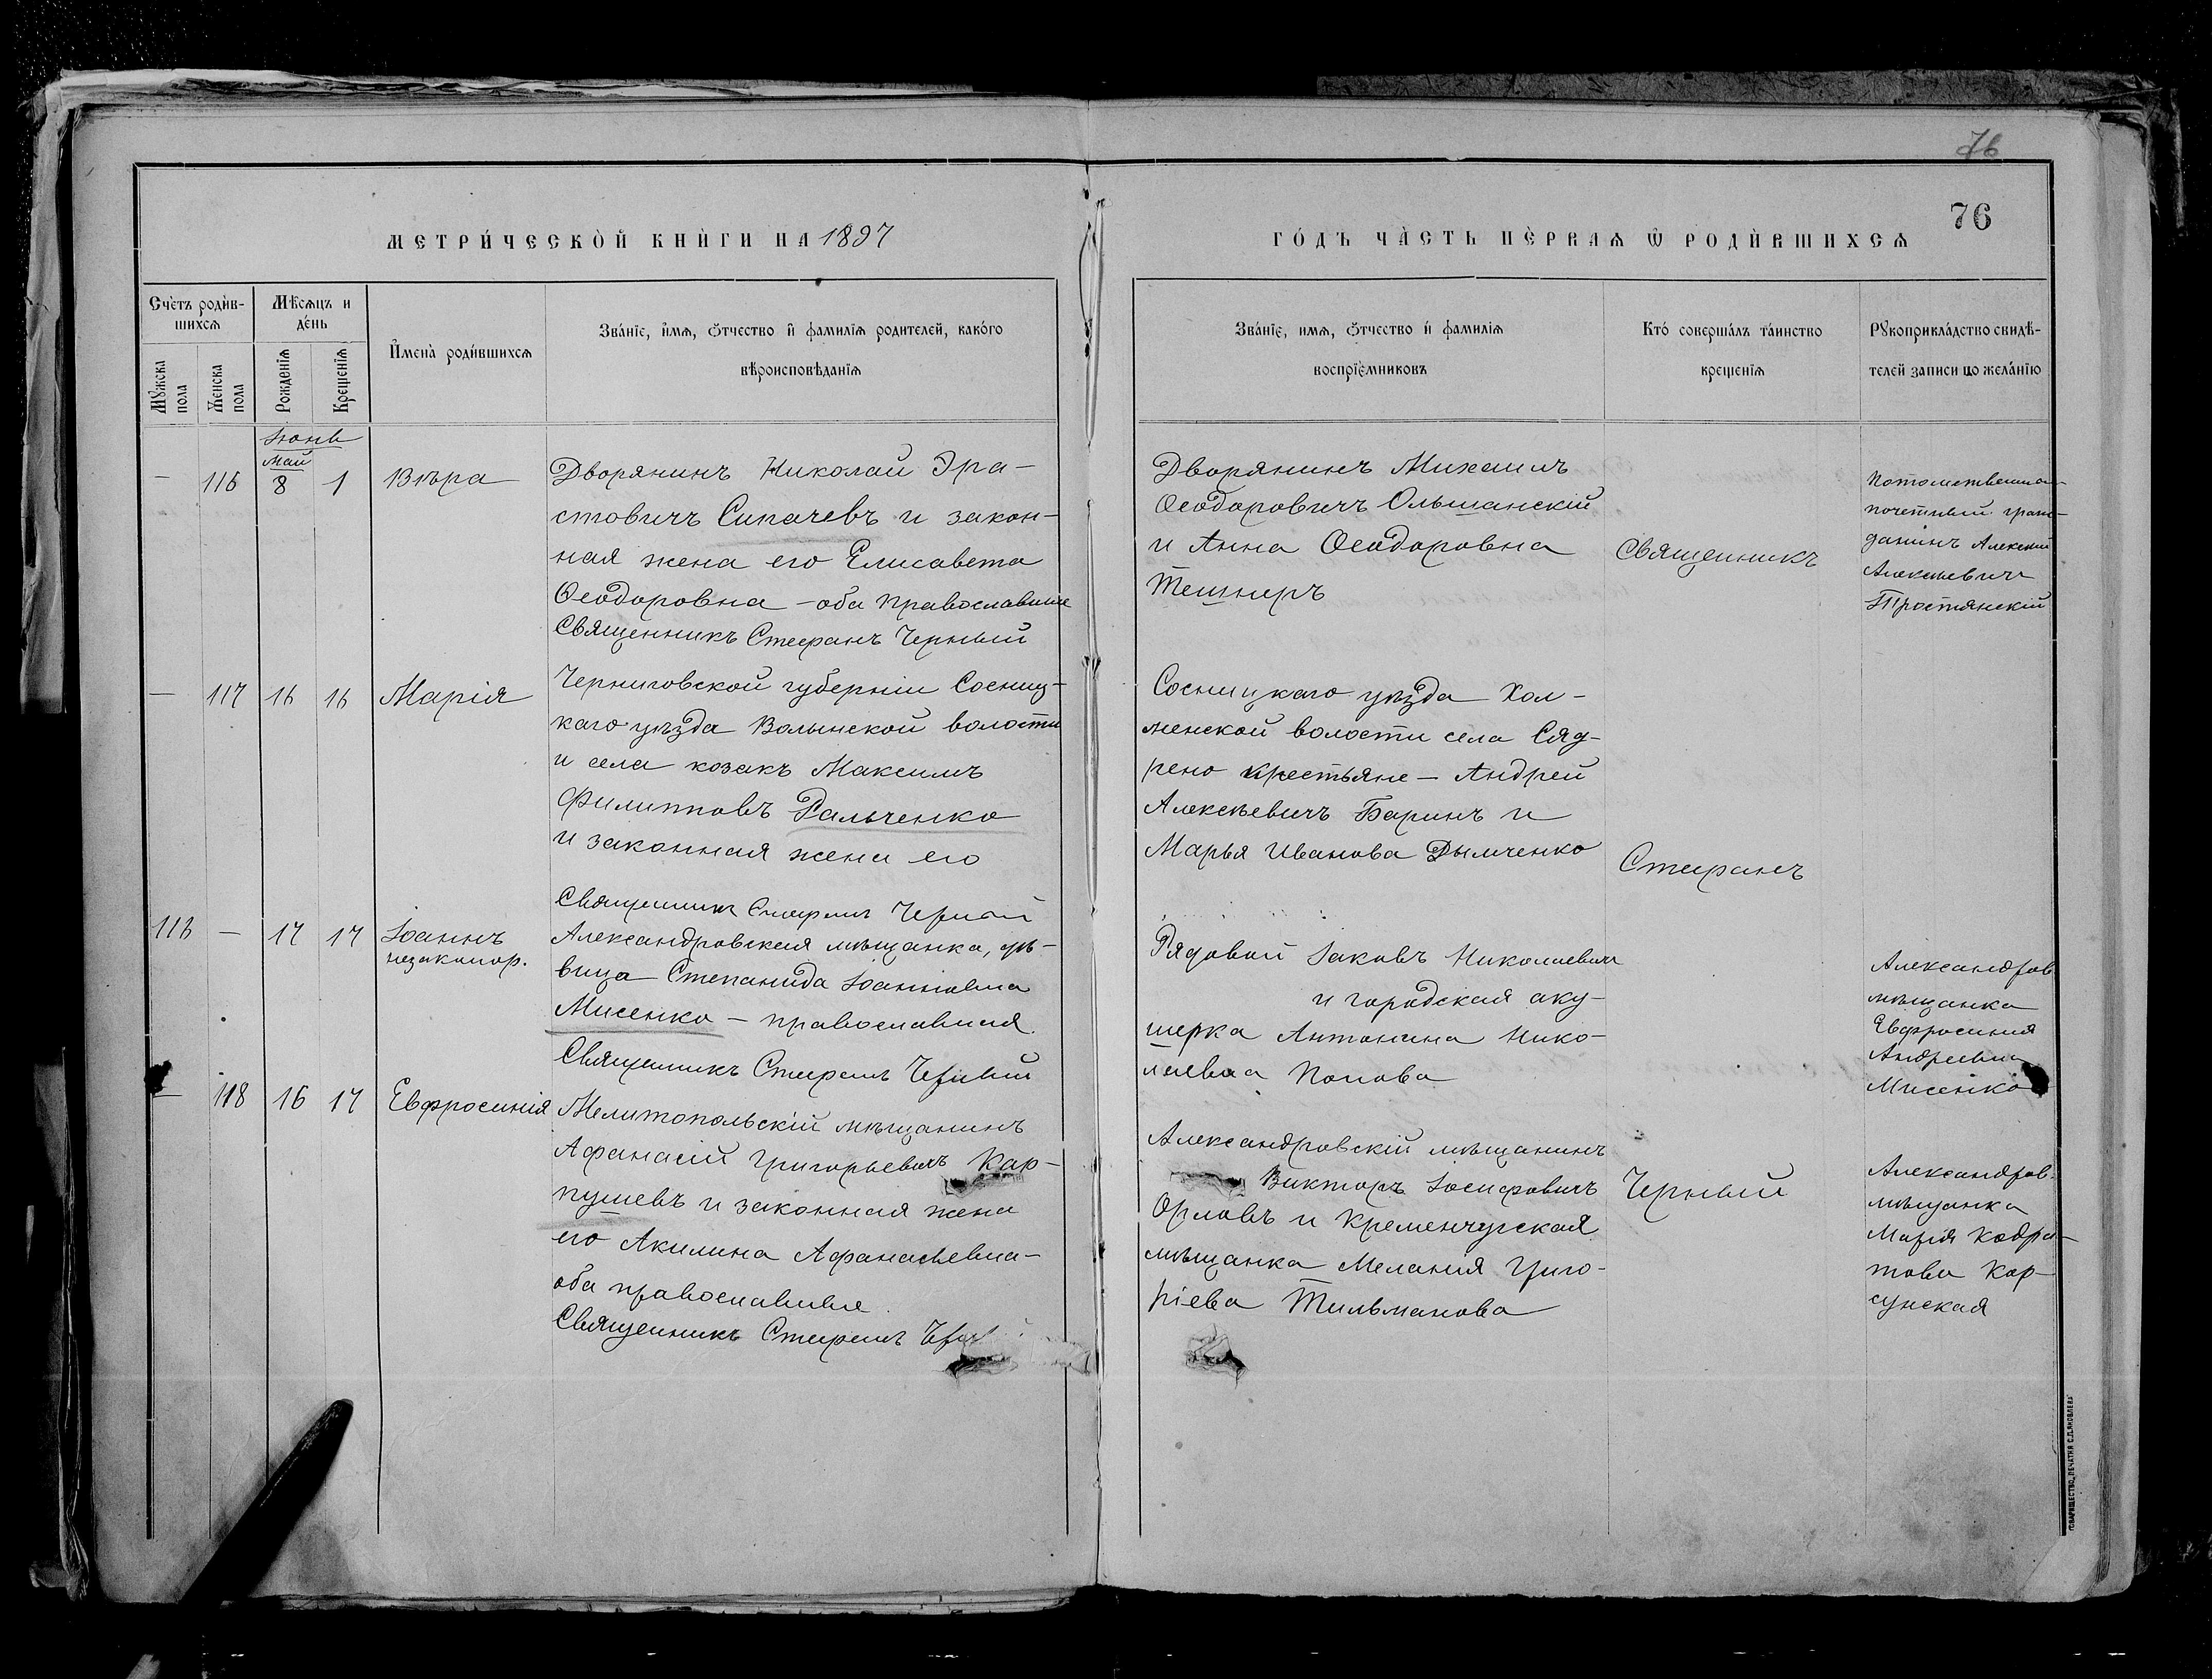 76
76
МЕТРИ́ЧЕСКОЙ КНИ́ГИ НА 1897
ГО́ДЪ ЧА́СТЬ ПЕ́РВАѦ Ѿ РОДИ́ВШИХСѦ
Сче́тъ роди́в-
шихсѧ
Мꙋжска
пола
Женска
пола
Мѣ́сѧцъ и
де́нь
Рожденїѧ
Крещенїѧ
И҆мена̀ роди́вшихсѧ
Зва́нїе, и҆́мѧ, ѻ҆́тчество и҆ фамилїѧ родителей, како́го
вѣроисповѣ́данїѧ
Зва́нїе, имѧ, ѻ҆́тчество и҆ фамилїѧ
воспрїе́мниковъ
Кто́ соверша́лъ та́инство
креще́нїѧ
Рꙋкоприкла́дство свидѣ́-
телей записи по жела́нїю
Іюнь
Май
— 116 8 1 Вѣра
Дворянинъ Николай Эра-
стовичъ Сипачевъ и закон-
ная жена его Елисавета
Ѳеодоровна — оба православные
Священникъ Стефанъ Черный
Дворянинъ Михаилъ
Ѳеодоровичъ Ольшанскій
и Анна Ѳеодоровна
Тешнеръ
Священникъ
Потомственный
почетный граж-
данинъ Алексѣй
Алексѣевичъ
Тростянскій
— 117 16 16 Марія
Черниговской губерніи Сосниц-
каго уѣзда Волынской волости
и села козакъ Максимъ
Филипповъ Ральченко
и законная жена его
Священникъ Стефанъ Черный
Сосницкаго уѣзда Хол-
менской волости села Сяд-
рено крестьяне — Андрей
Алексѣевичъ Баринъ и
Марья Иванова Дымченко
Стефанъ
116 — 17 17 Іоаннъ
незаконор.
Александровская мѣщанка, дѣ-
вица Степанида Іоанновна
Мисенко — православная.
Священникъ Стефанъ Черный
Рядовой Іаковъ Николаевичъ
и городская аку-
шерка Антонина Нико-
лаевна Попова
Александров.
мѣщанка
Евфросинія
Андреевна
Мисенко
— 118 16 17 Евфросинія
Мелитопольскій мѣщанинъ
Афанасій Григорьевичъ Кар-
пушевъ и законная жена
его Акилина Афанасьевна —
оба православные.
Священникъ Стефанъ
Александровскій мѣщанинъ
Викторъ Іосифовичъ
Орловъ и Кременчугская
мѣщанка Меланія Григо-
ріева Тильманова
Черный
Александров.
мѣщанка
Марія Кодра-
това Кор-
сунская
ТОВАРИЩЕСТВО „ПЕЧАТНЯ С.П.ЯКОВЛЕВА"